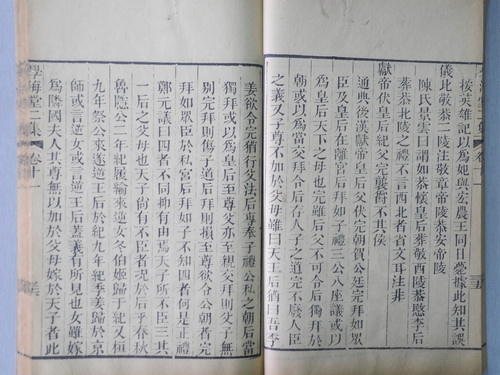 按英雄記以為她與宏農王同日薨據此知其誤
儀此敬恭二陵注敬章帝陵恭安帝陵
陳氏景雲曰謂如恭懷皇后葬敬西陵恭愍李后
葬恭北陵之禮不言西北者省文耳注非
獻帝伏皇后紀父完襲爵不其侯
通典後漢獻帝皇后父伏完朝賀公廷完拜如眾
臣及皇后在離宮后拜如子禮三公八座議或以
為皇后天下之母也完雖后父不可令后獨拜於
朝或以為當交拜令后存人子之道完不廢人臣
之義又子尊不加於父母雖曰天王后猶曰吾季
姜欲令完猶行父法后專奉子禮公私之朝后當
獨拜或以為皇后至尊父亦至親交拜則父子無
別完拜則傷子道后拜則損至尊欲令公朝者完
拜如眾臣於私宮后拜如子不知四者何是正禮
鄭元議曰四者不同抑有由焉天子所不臣者三其
一后之父母也天子尚有不臣者況於后乎春秋
魯隱公二年紀履緰來逆女冬伯姬歸于紀又桓
九年祭公來遂逆王后於紀九年紀季姜歸於京
師或言逆女或言逆王后蓋義有所見也女雖嫁
為隣國夫人其尊無以加於父母嫁於天子者此
學海堂二集 卷十一